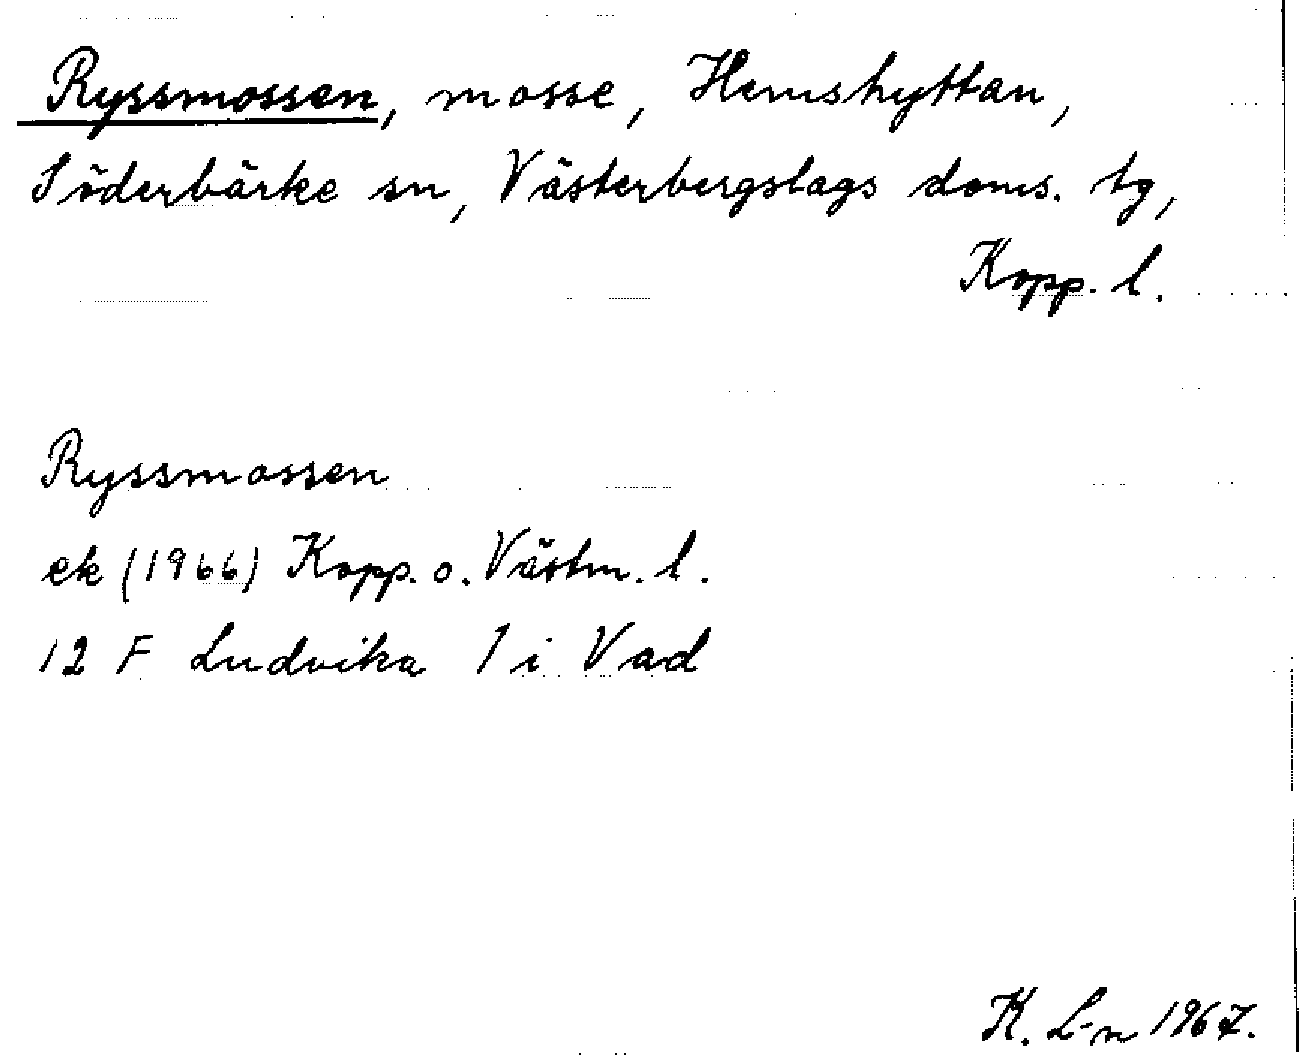 Ryssmossen, mosse, Hemshyttan,
Söderbärke sn, Västerbergslags doms. tg,
Kopp. l.
Ryssmossen
ek (1966) Kopp. o. Västm. l.
12 F Ludvika 1 i Vad
K. L-n 1967.